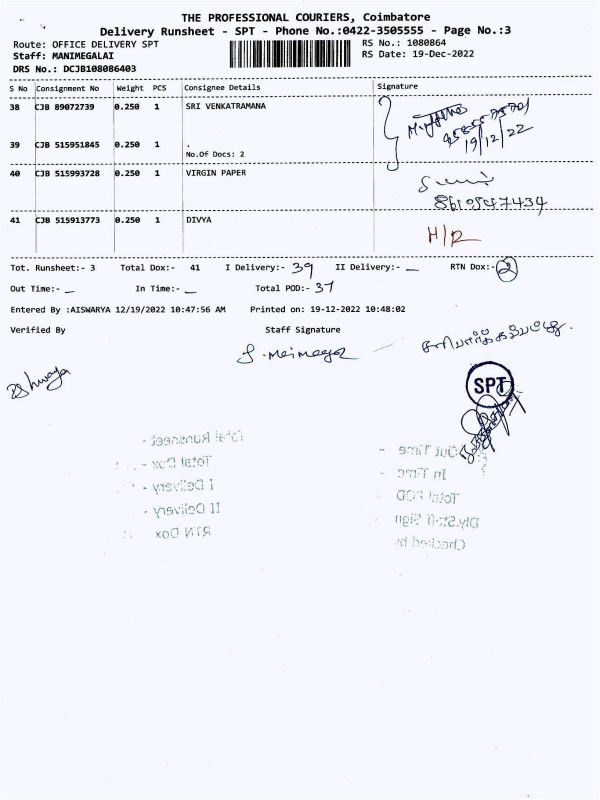 THE PROFESSIONAL COURIERS, Coimbatore
Delivery Runsheet - SPT - Phone No.:0422-3505555 - Page No.:3
Route: OFFICE DELIVERY SPT
RS No.: 1080864
Staff: MANIMEGALAI
RS Date: 19-Dec-2022
DRS No.: DCJB108086403
S No Consignment No Weight PCS Consignee Details Signature
38 CJB 89072739 0.250 1 SRI VENKATRAMANA
19/12/22
39 CJB 515951845 0.250 1 .
No.Of Docs: 2
40 CJB 515993728 0.250 1 VIRGIN PAPER
41 CJB 515913773 0.250 1 DIVYA
H/R
Tot. Runsheet:- 3 Total Dox:- 41 I Delivery:- 39 II Delivery:- — RTN Dox:- 2
Out Time:- — In Time:- — Total POD:- 37
Entered By :AISWARYA 12/19/2022 10:47:56 AM Printed on: 19-12-2022 10:48:02
Verified By Staff Signature
SPT
Total Runsheet -
Out Time -
Total Dox -
In Time -
I Delivery -
Total POD -
II Delivery -
Dly.Staff Sign -
RTN Dox
Checked by